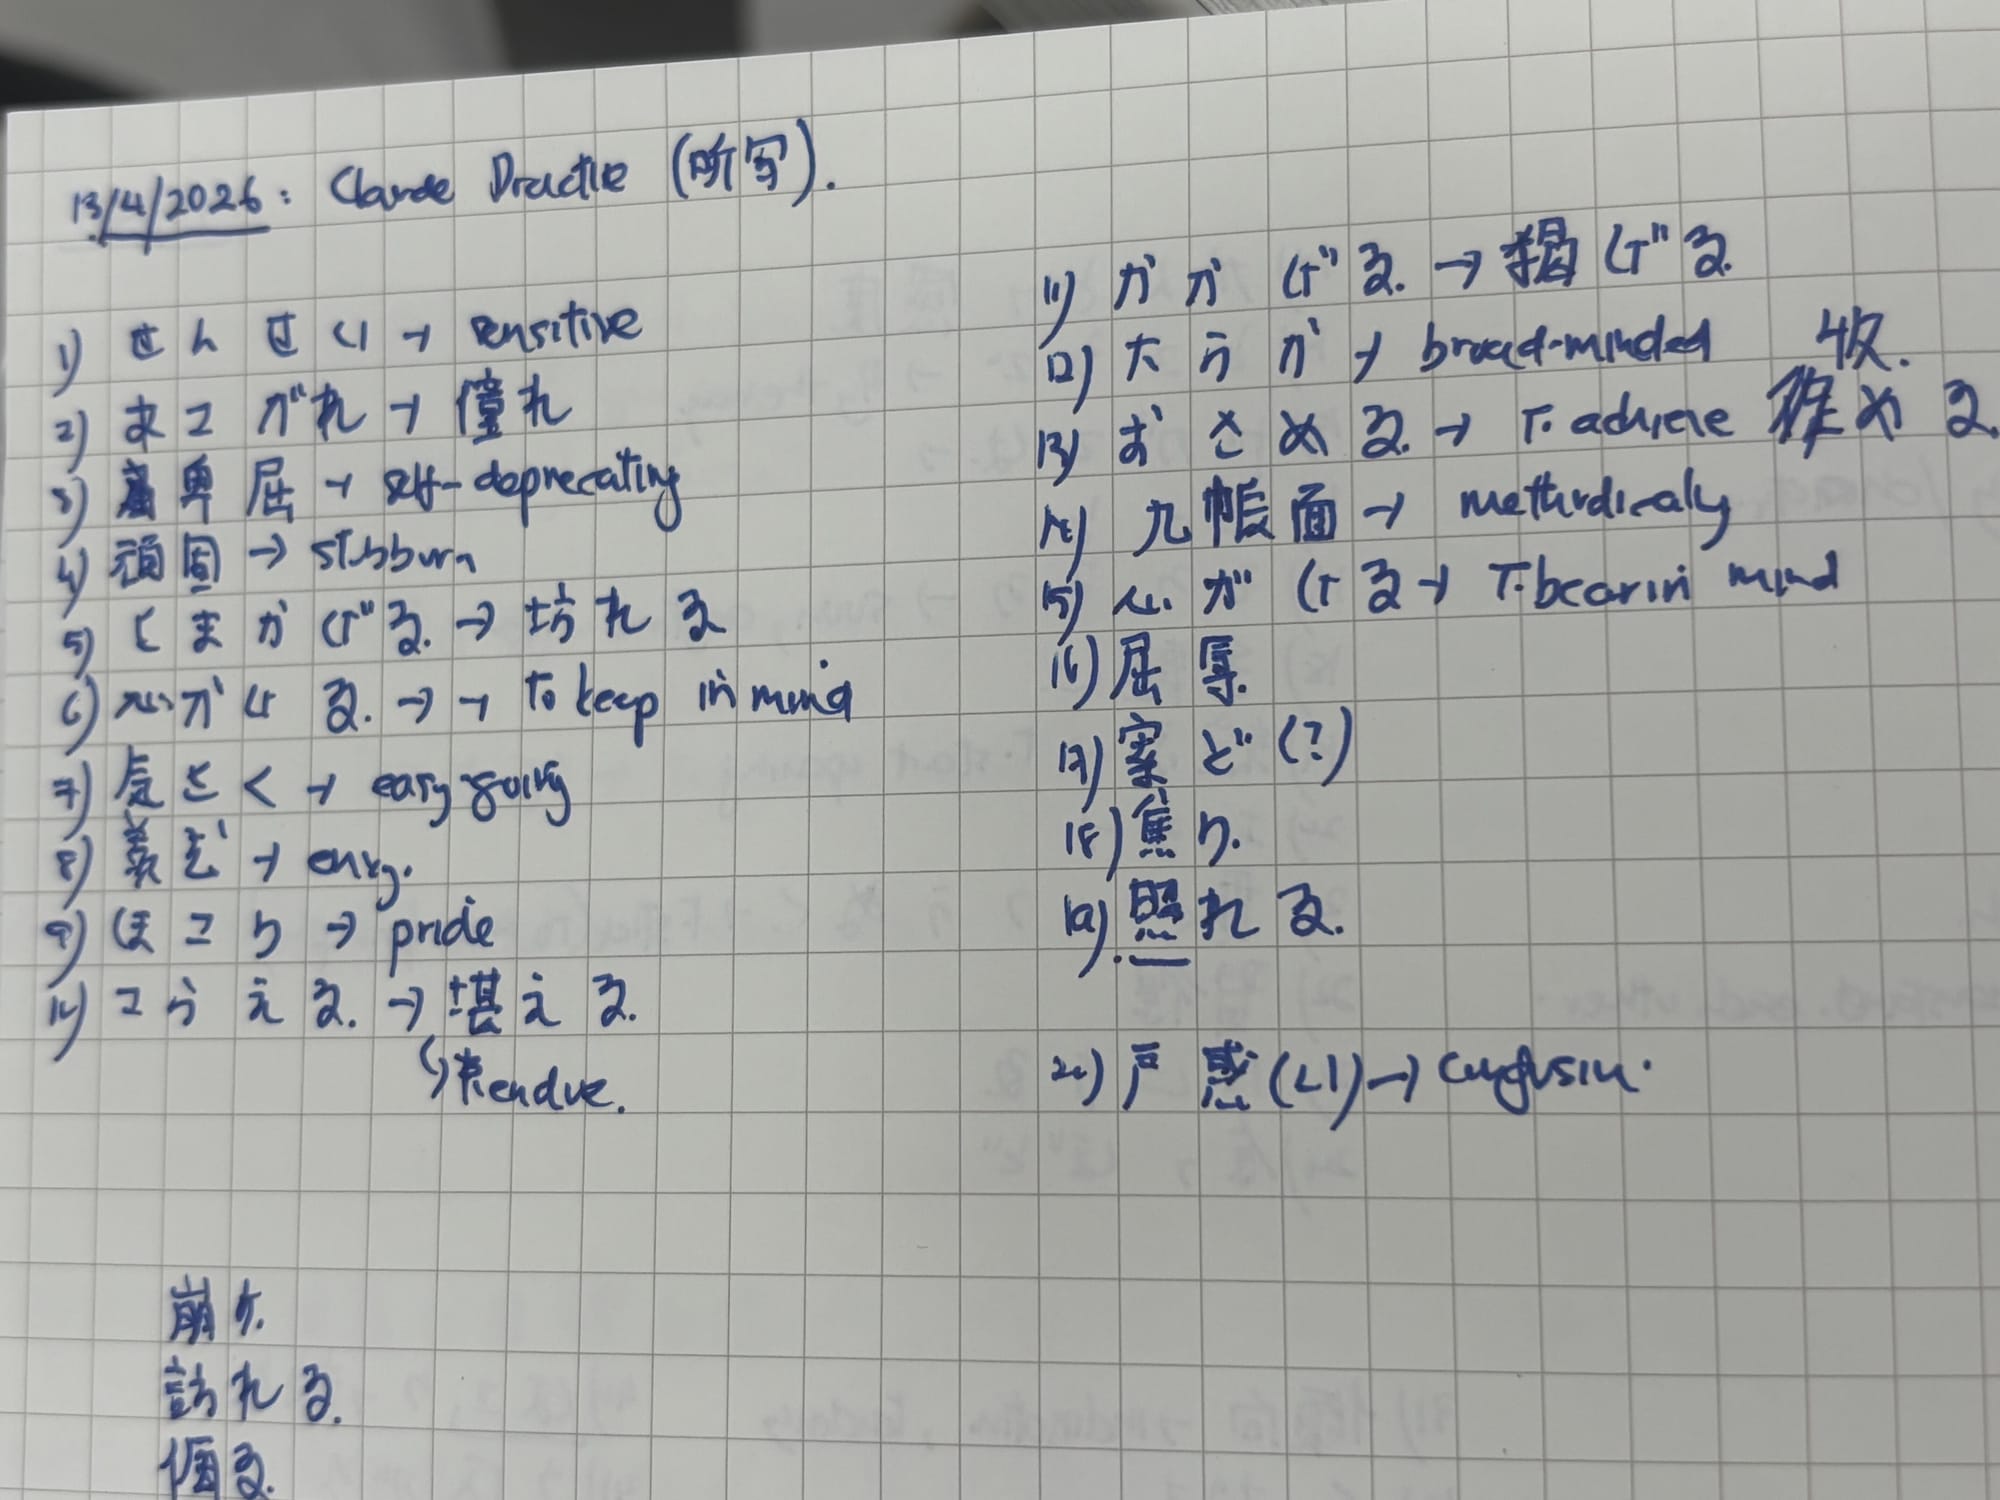 13/4/2026: Claude Practice (所写).
1) せんせい → sensitive
2) あこがれ → 憧れ
3) 卑屈 → self-deprecating
4) 頑固 → stubborn
5) くまかげる. → 坊れる
6) 心がける. → → to keep in mind
7) 気さく → easy going
8) 羨む → envy.
9) ほこり → pride
10) こらえる. → 堪える.
↳ to endure.
11) かかげる. → 掲げる.
12) 大らか → broad-minded
13) おさめる. → T. achieve 収.
める.
14) 九帳面 → methodically
15) 心がける → T. bear in mind
16) 屈辱.
17) 案ど (?)
18) 焦り.
19) 照れる.
20) 戸惑(い) → confusion.
崩
訪れる.
る.